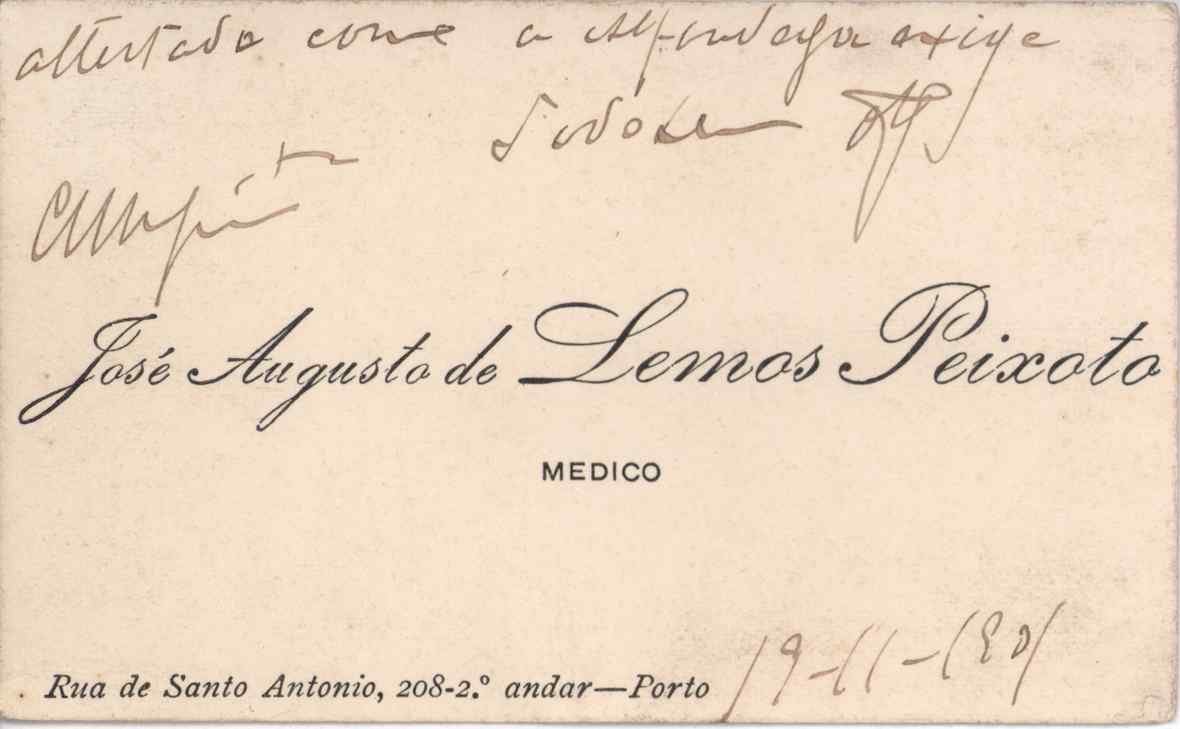 attestado como a Alfandega exige
José Augusto de Lemos Peixoto
MEDICO
Rua de Santo Antonio, 208-2.º andar—Porto
19-11-